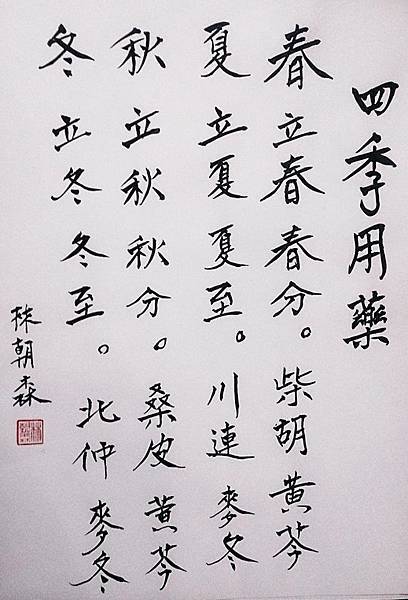 四季用藥
春立春春分。柴胡黄芩
夏立夏夏至。川連麥冬
秋立秋秋分。桑皮黄芩
冬立冬冬至。北仲麥冬
林朝森